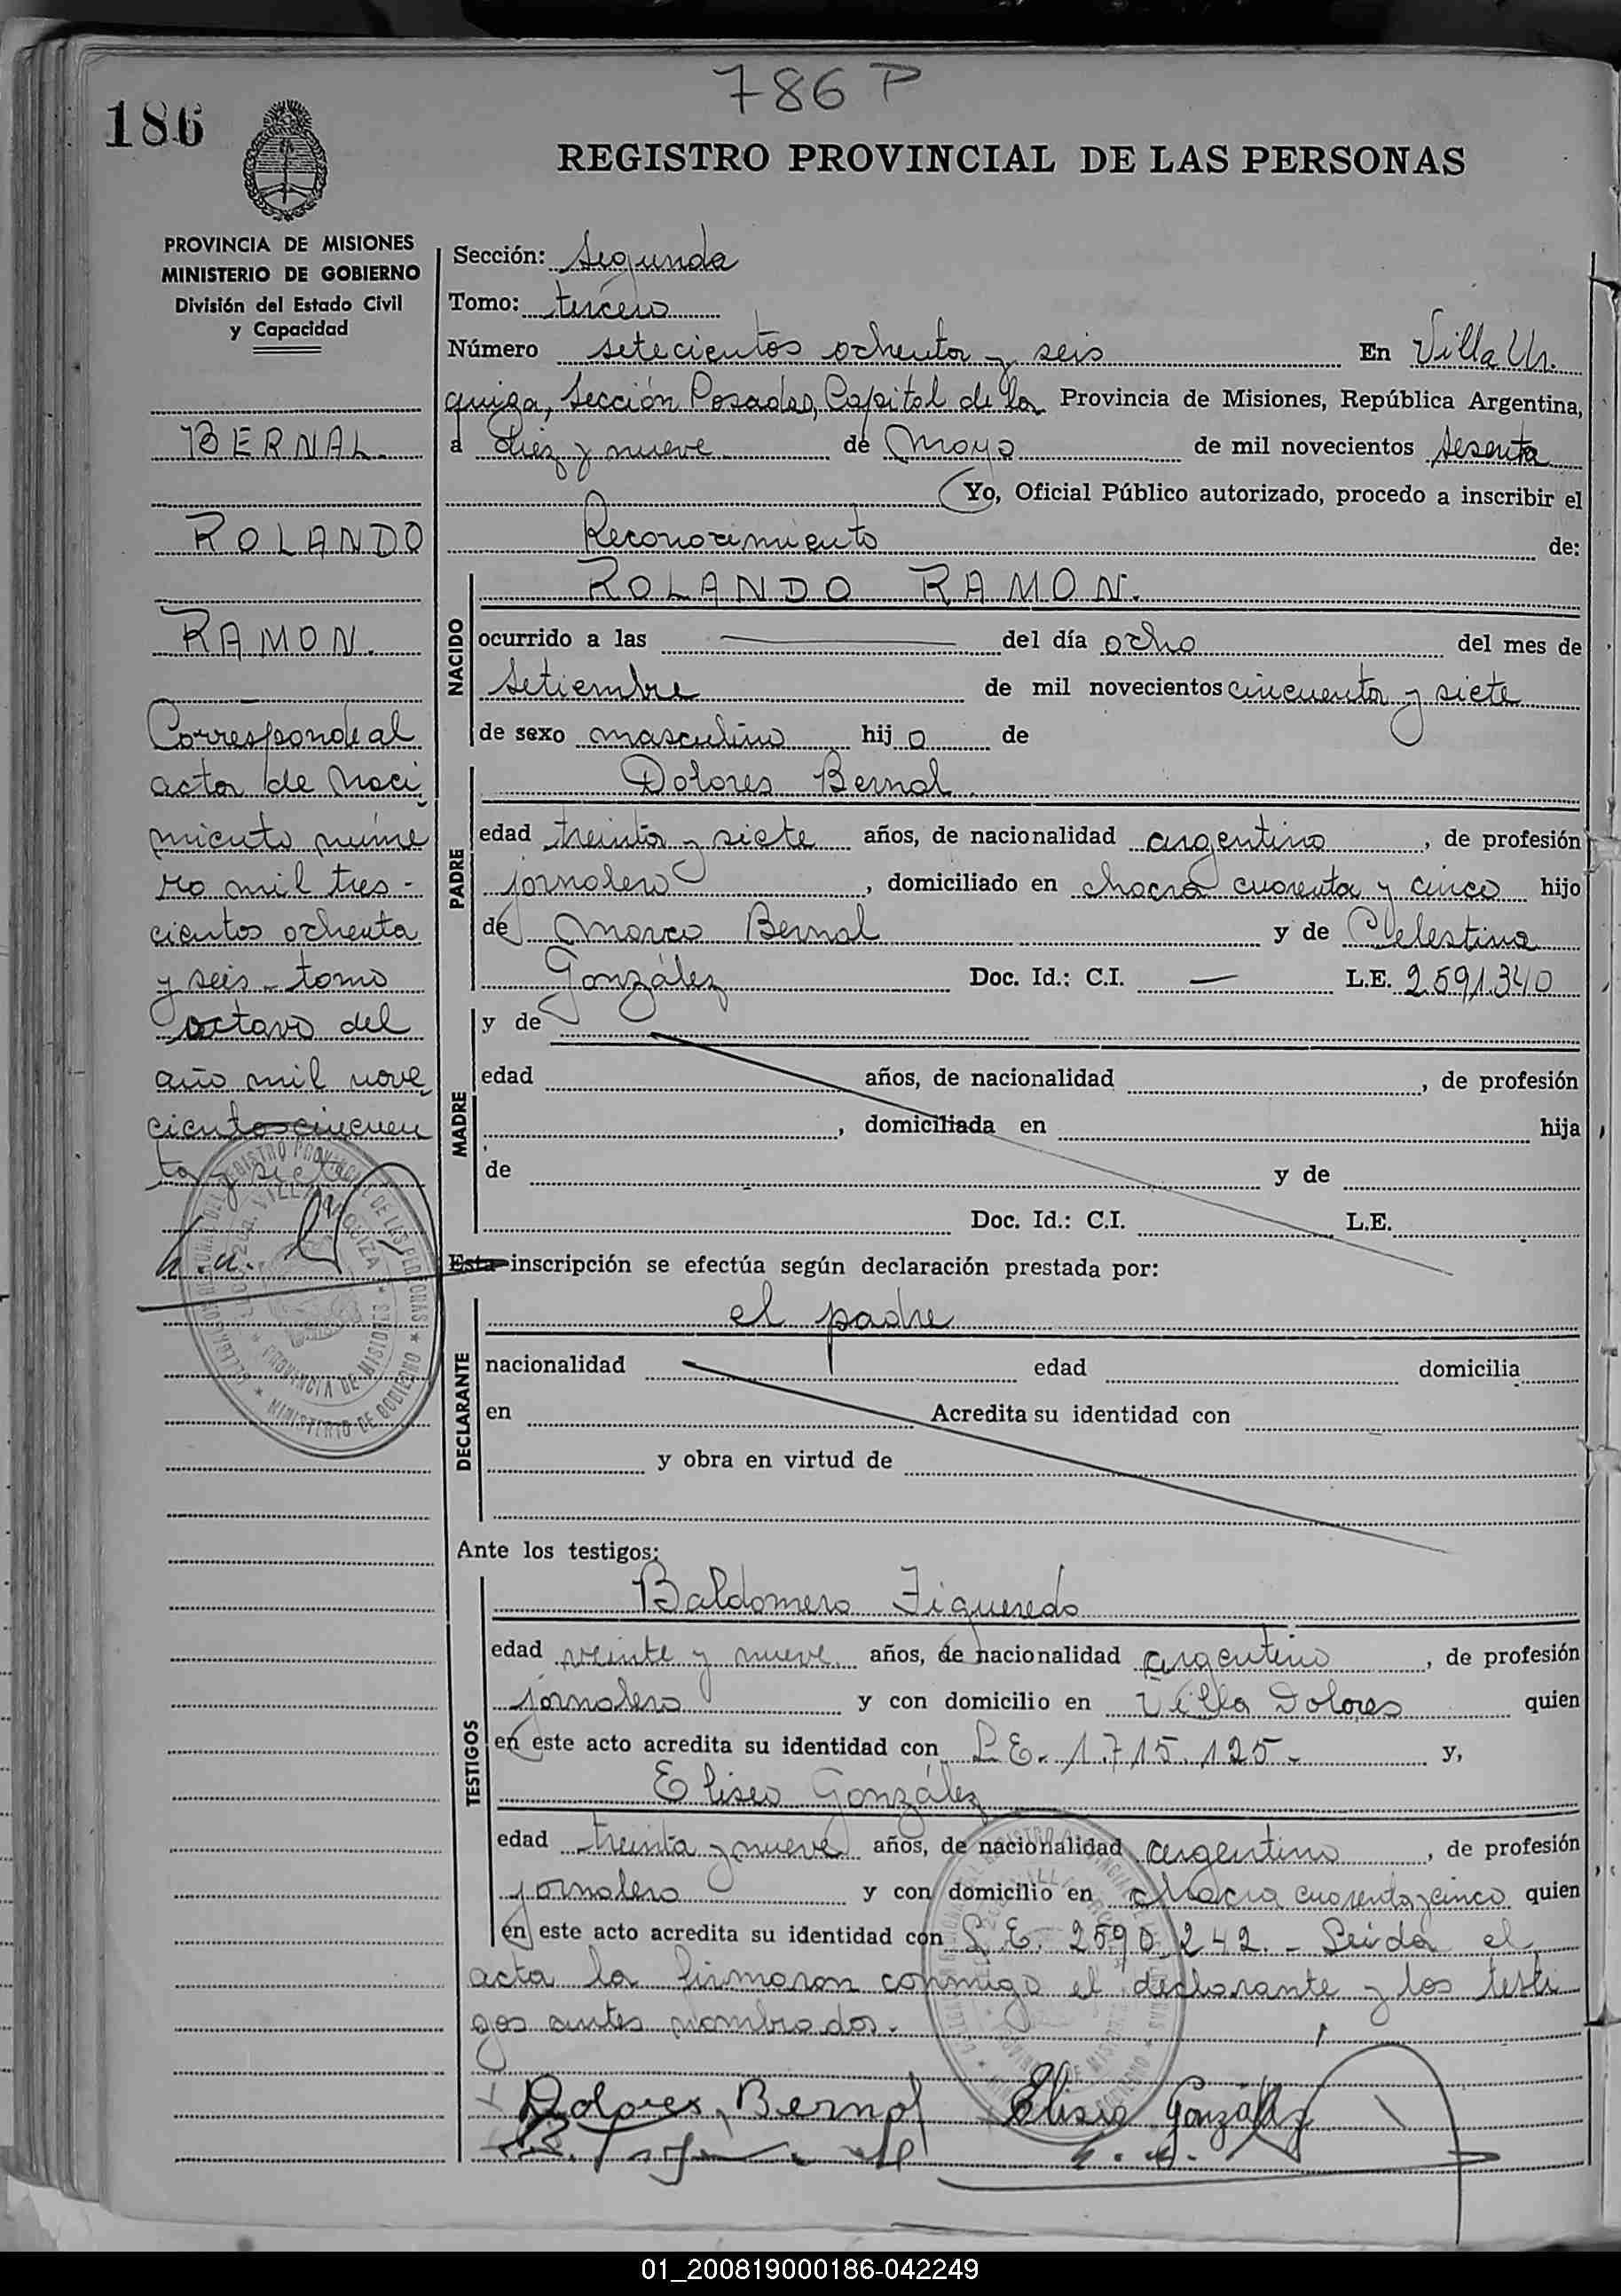 786 P
186
REGISTRO PROVINCIAL DE LAS PERSONAS
PROVINCIA DE MISIONES
MINISTERIO DE GOBIERNO
División del Estado Civil
y Capacidad
BERNAL.
ROLANDO
RAMON.
Corresponde al
acta de naci
miento núme
ro mil tres-
cientos ochenta
y seis - tomo
octavo del
año mil nove
cientos cincuen
ta y siete
Sección: Segunda
Tomo: tercero
Número setecientos ochenta y seis En Villa Ur.
quiza, Sección Posadas, Capital de la Provincia de Misiones, República Argentina,
a diez y nueve de Mayo de mil novecientos sesenta
Yo, Oficial Público autorizado, procedo a inscribir el
Reconocimiento de:
NACIDO
ROLANDO RAMON.
ocurrido a las del día ocho del mes de
Setiembre de mil novecientos cincuenta y siete
de sexo masculino hij o de
PADRE
Dolores Bernal
edad treinta y siete años, de nacionalidad argentino, de profesión
jornalero, domiciliado en chacra cuarenta y cinco hijo
de Marco Bernal y de Celestina
González Doc. Id.: C.I. — L.E. 2.591.340
MADRE
y de
edad años, de nacionalidad , de profesión
, domiciliada en hija
de y de
Doc. Id.: C.I. L.E.
Esta inscripción se efectúa según declaración prestada por:
DECLARANTE
el padre
nacionalidad edad domicilia
en Acredita su identidad con
y obra en virtud de
Ante los testigos:
TESTIGOS
Baldomero Figueredo
edad veinte y nueve años, de nacionalidad argentino, de profesión
jornalero y con domicilio en Villa Dolores quien
en este acto acredita su identidad con L.E. 1.715.125.- y,
Eliseo González
edad treinta y nueve años, de nacionalidad argentino, de profesión
jornalero y con domicilio en chacra cuarenta y cinco quien
en este acto acredita su identidad con L.E. 2590.242.- Leída el
acta la firmaron conmigo el declarante y los testi
gos antes nombrados.
Dolores Bernal Eliseo González
01_200819000186-042249